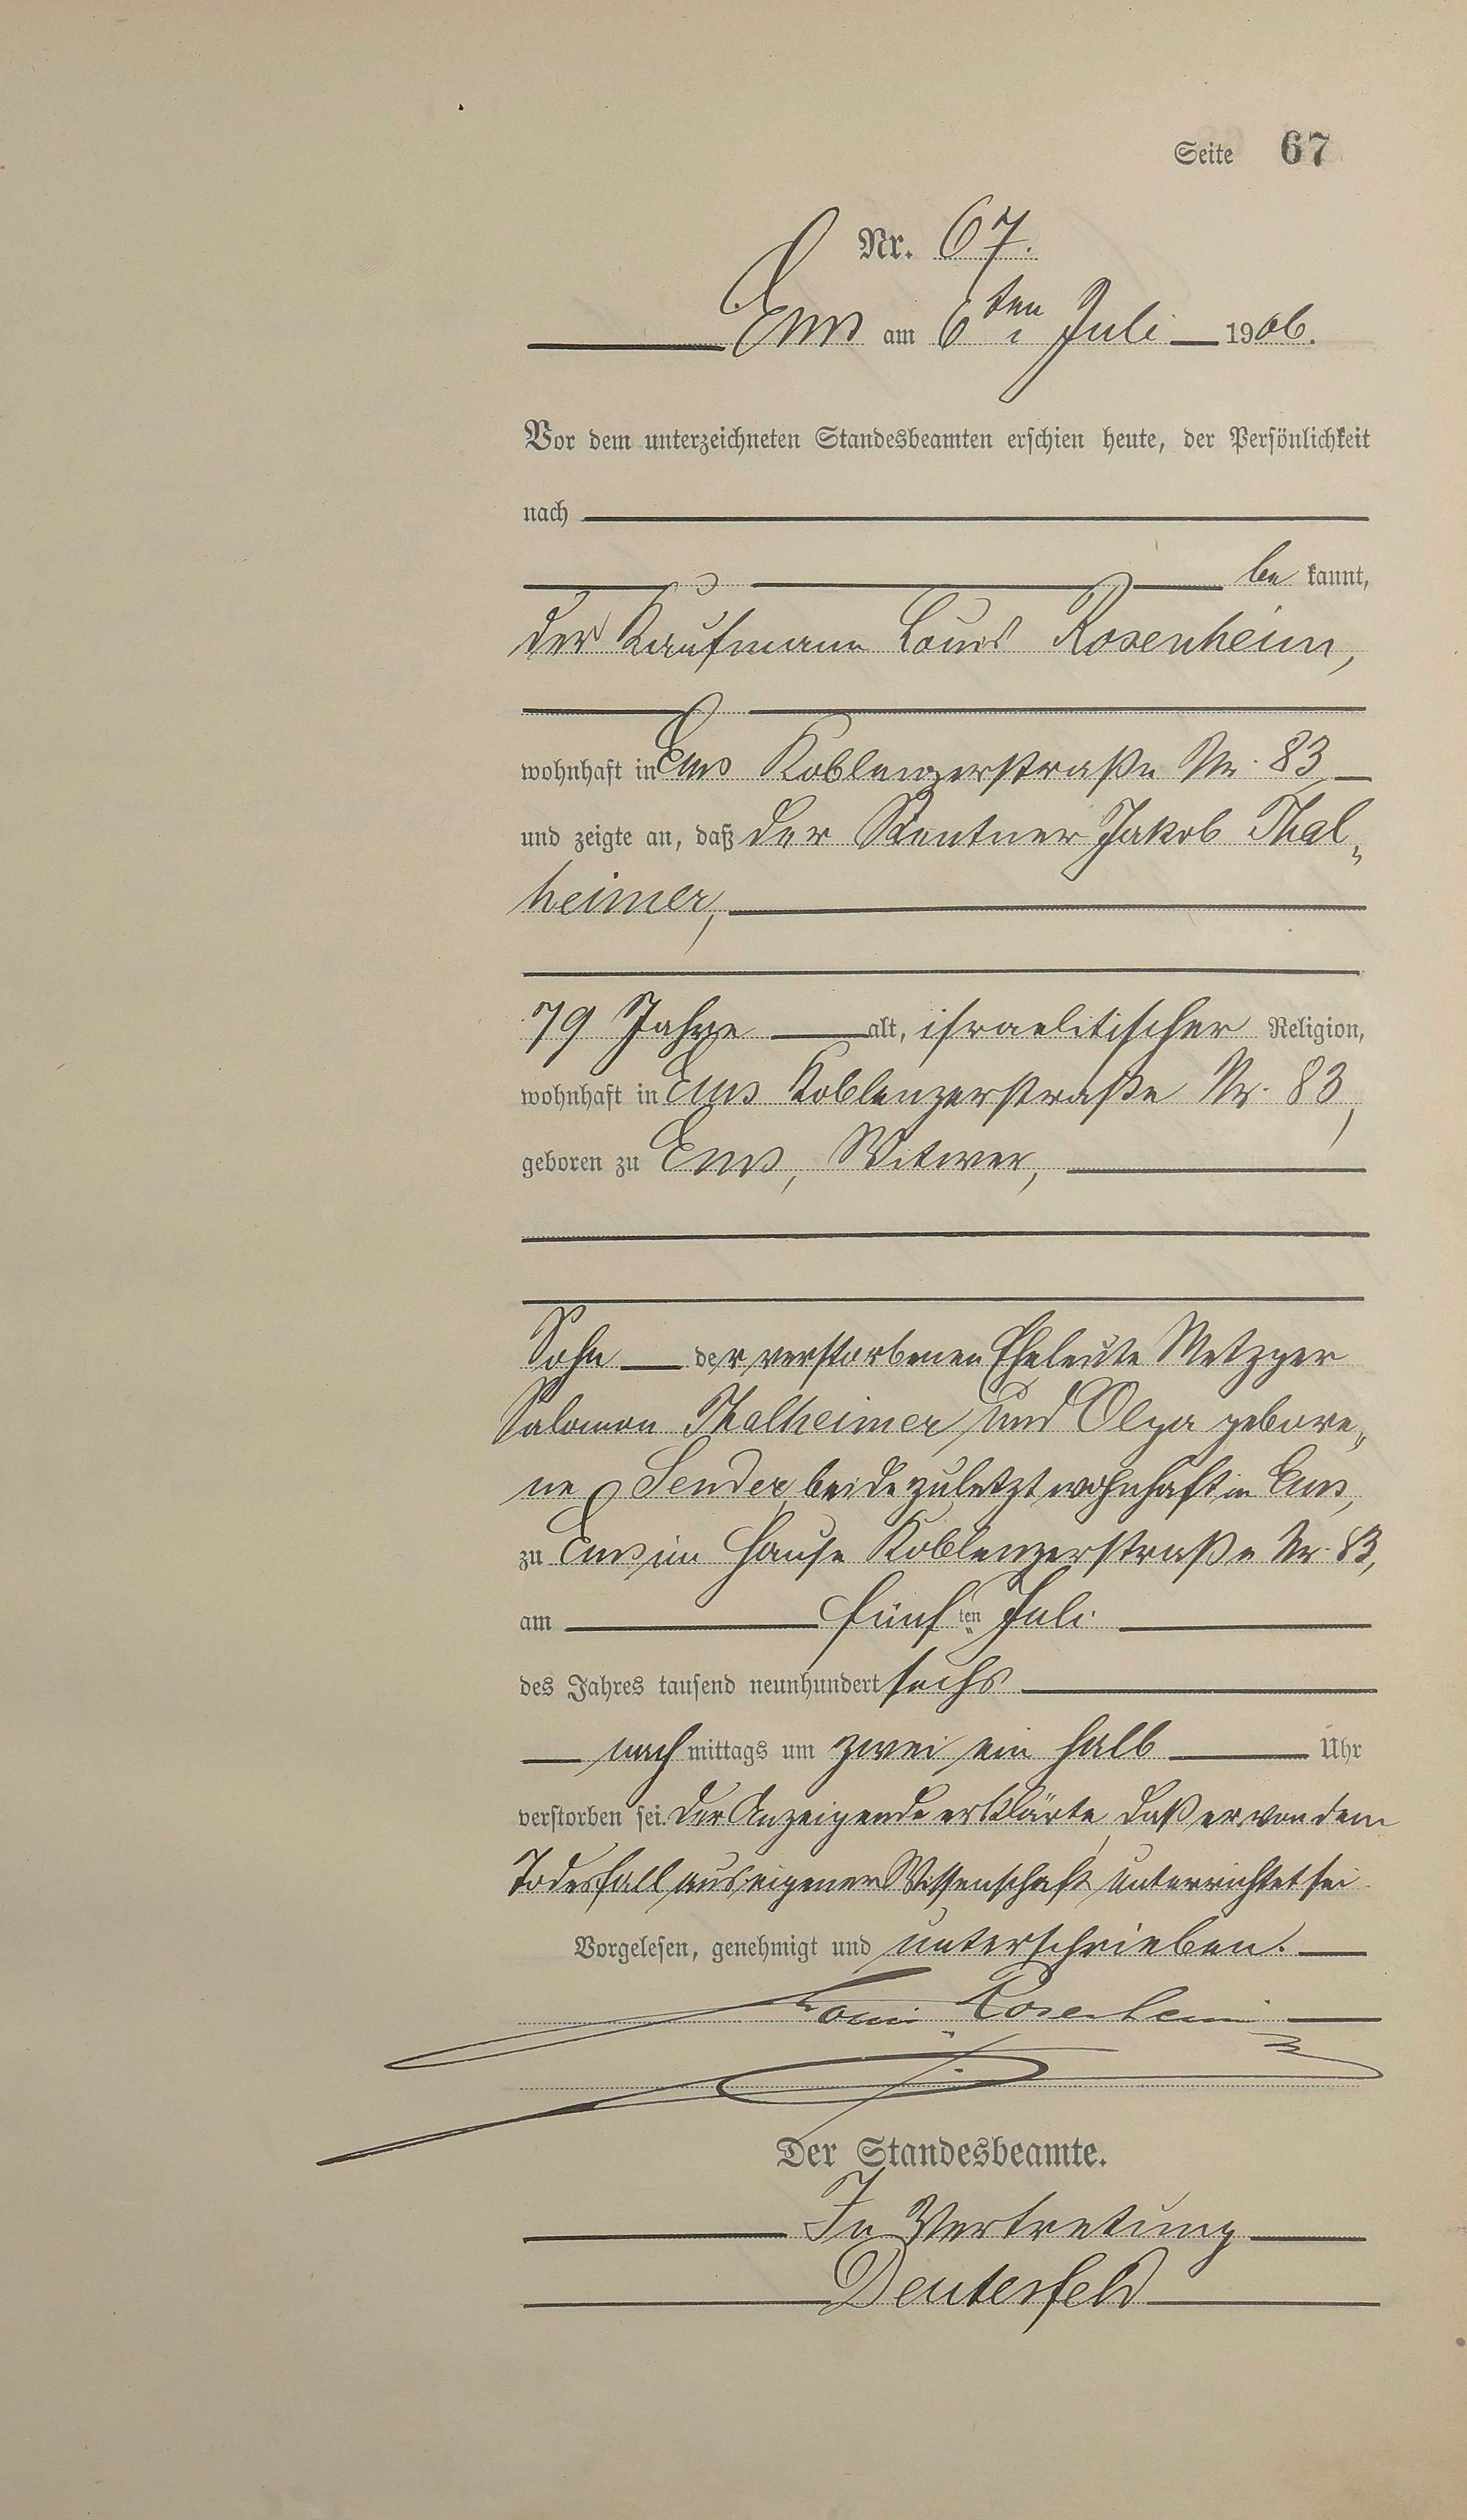 Seite 67
Nr. 67.
Ems am 6ten Juli 1906.
Vor dem unterzeichneten Standesbeamten erschien heute, der Persönlichkeit
nach
be kannt,
der Kaufmann Louis Rosenheim,
wohnhaft in Ems Koblenzerstraße Nr. 83
und zeigte an, daß der Rentner Jakob Thal„
heimer,
79 Jahre alt, israelitischer Religion,
wohnhaft in Ems Koblenzerstraße Nr. 83,
geboren zu Ems, Witwer,
Sohn der verstorbenen Eheleute Metzger
Salomon Thalheimer und Olga gebore„
ne Sender, beide zuletzt wohnhaft in Ems,
zu Ems im Hause Koblenzerstraße Nr. 83,
am fünften Juli
des Jahres tausend neunhundert sechs
nachmittags um zwei ein halb Uhr
verstorben sei. Der Anzeigende erklärte, daß er von dem
Todesfall aus eigener Wissenschaft unterrichtet sei.
Vorgelesen, genehmigt und unterschrieben.
Louis Rosenheim
Der Standesbeamte.
In Vertretung
Deutesfeld